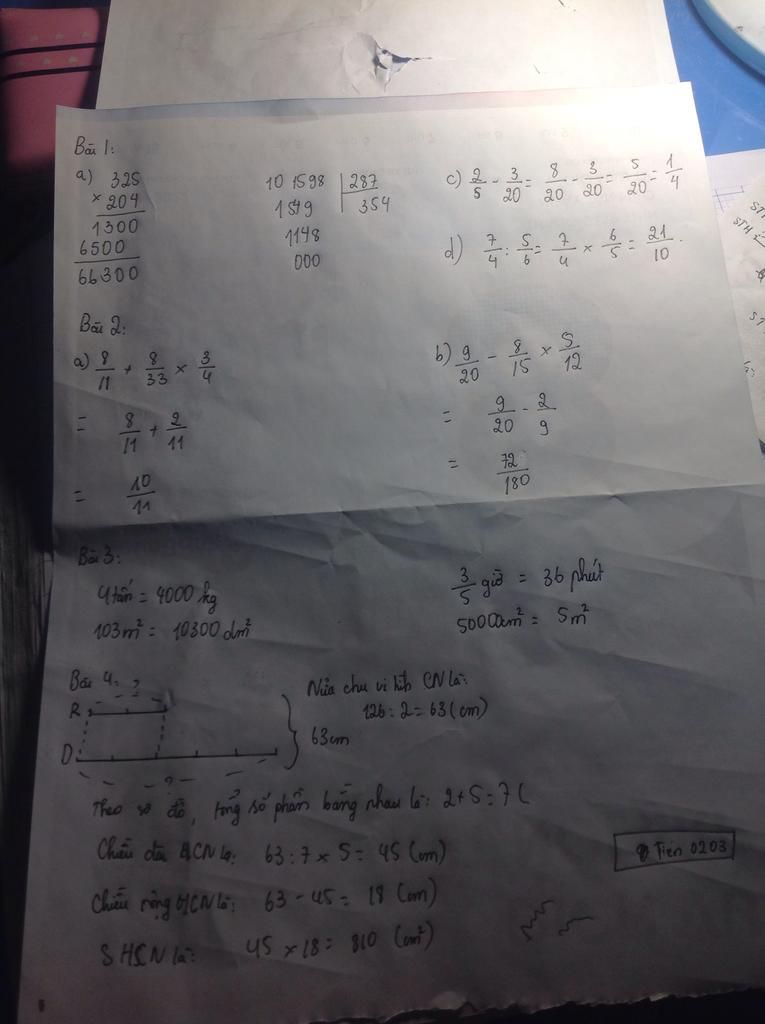 Bài 1:
a) 325
× 204
1300
6500
66300
101598 | 287
1549 | 354
1148
000
c) 2/5 - 3/20 = 8/20 - 3/20 = 5/20 = 1/4
d) 7/4 : 5/6 = 7/4 × 6/5 = 21/10.
Bài 2:
a) 8/11 + 8/33 × 3/4
= 8/11 + 2/11
= 10/11
b) 9/20 - 8/15 × 5/12
= 9/20 - 2/9
= 72/180
Bài 3:
4 tấn = 4000 kg
103m² = 10300 dm²
3/5 giờ = 36 phút
50000cm² = 5m²
Bài 4: ?
R
D
?
63cm
Nửa chu vi hình CN là:
126 : 2 = 63 (cm)
Theo sơ đồ, tổng số phần bằng nhau là: 2 + 5 = 7 (
Chiều dài HCN là: 63 : 7 × 5 = 45 (cm)
Chiều rộng HCN là: 63 - 45 = 18 (cm)
S HCN là: 45 × 18 = 810 (cm²)
Tiên 0203